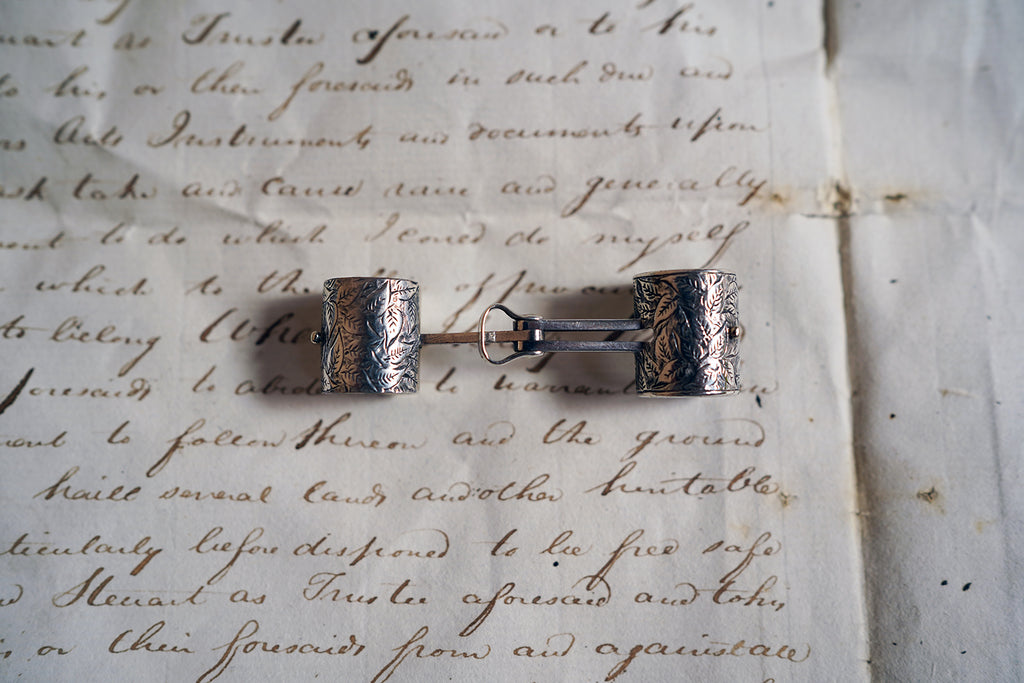 Stewart as Trustee aforesaid or to his
to his or their foresaids in such due and
Acts Instruments and documents upon
ask take and cause raise and generally
to do which I could do myself
which to the of
to belong
foresaids to to warrant
to follow thereon and the ground
haill several lands and other heritable
ticularly before disponed to be free safe
Steuart as Trustee aforesaid and to his
or their foresaids from and against all